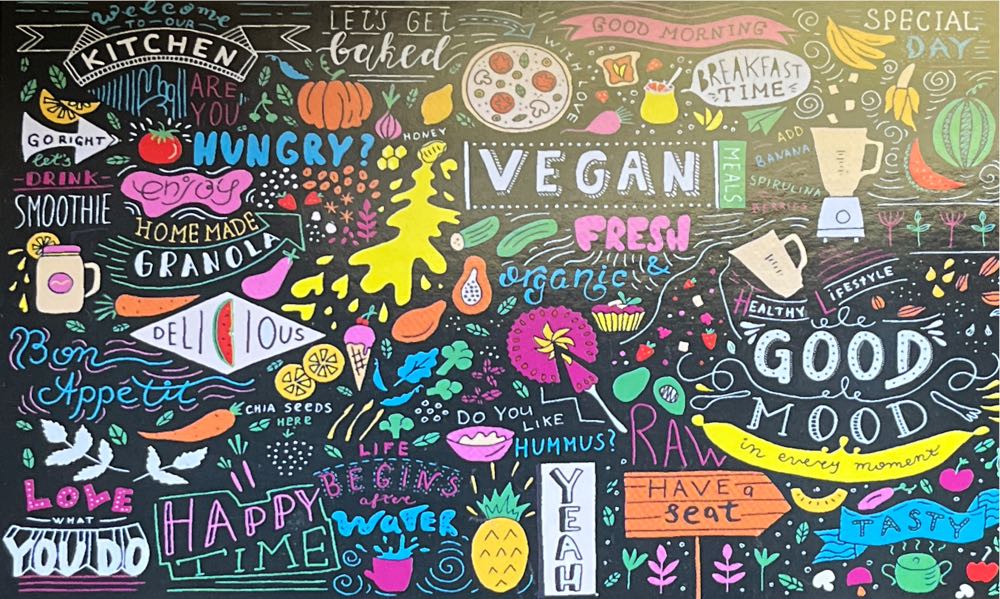 welcome
TO-OUR
KITCHEN
ARE
YOU
HUNGRY?
LET'S GET
baked
WITH LOVE
GOOD MORNING
BREAKFAST
TIME
SPECIAL
DAY
GO RIGHT
let's
-DRINK-
SMOOTHIE
enjoy
HOMEMADE
GRANOLA
HONEY
VEGAN
MEALS
ADD
BANANA
SPIRULINA
BERRIES
FRESH
organic &
HEALTHY LIFESTYLE
GOOD
MOOD
in every moment
DELICIOUS
Bon
Appétit
CHIA SEEDS
HERE
DO YOU
LIKE
HUMMUS?
RAW
LOVE
WHAT
YOU DO
HAPPY
TIME
LIFE
BEGINS
after
WATER
YEAH
HAVE a
seat
TASTY